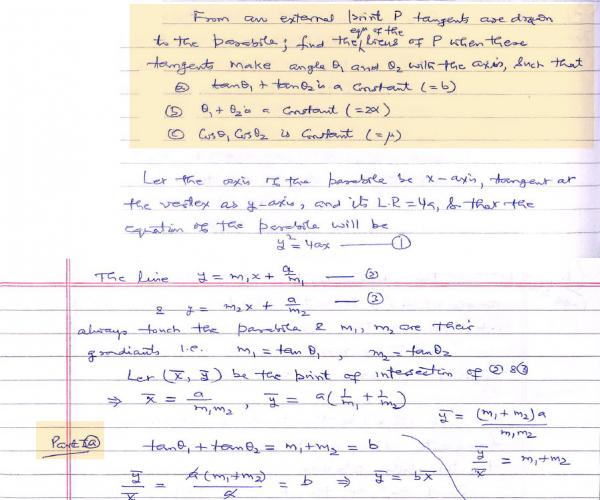 From an external point P tangents are drawn
to the parabola; find the eqn of the locus of P when these
tangents make angle θ₁ and θ₂ with the axis, such that
(a) tanθ₁ + tanθ₂ is a Constant (= b)
(b) θ₁ + θ₂ is a Constant (= 2α)
(c) Cosθ₁ Cosθ₂ is Constant (= μ)
Let the axis of the parabola be x-axis, tangent at
the vertex as y-axis, and its L.R = 4a, so that the
equation of the parabola will be
y² = 4ax —— (1)
The line y = m₁x + a/m₁ —— (2)
& y = m₂x + a/m₂ —— (3)
always touch the parabola & m₁, m₂ are their
gradiants i.e. m₁ = tan θ₁, m₂ = tan θ₂
Let (x̄, ȳ) be the point of intersection of (2) & (3)
⇒ x̄ = a/m₁m₂, ȳ = a(1/m₁ + 1/m₂)
ȳ = (m₁ + m₂)a/m₁m₂
Part (a) tanθ₁ + tanθ₂ = m₁ + m₂ = b
ȳ/x̄ = m₁ + m₂
ȳ/x̄ = a(m₁ + m₂)/a = b ⇒ ȳ = bx̄